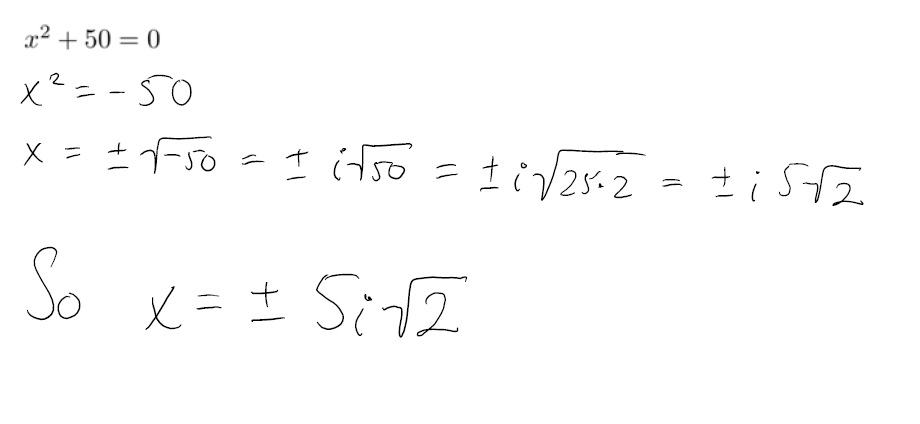 x² + 50 = 0
x² = - 50
x = ± √-50 = ± i√50 = ± i√25·2 = ± i 5√2
So x = ± 5i√2